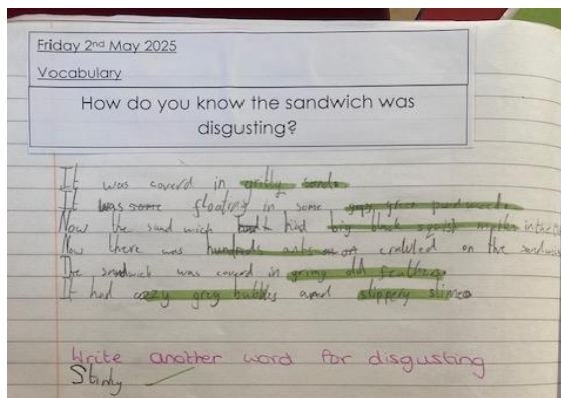 Friday 2nd May 2025
Vocabulary
How do you know the sandwich was
disgusting?
It was coverd in gritty sand.
It was some floating in some green pond
Now the sand wich had big black in the
Now there was hundreds ants on cralded on the
The sandwich was coverd in grimy old feathers
It had oozy greg bubbles and slippery slime
Write another word for disgusting
Stinky